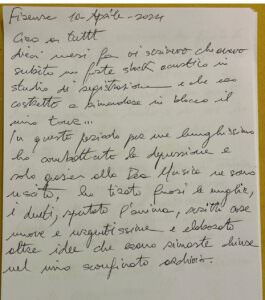 Firenze 10 Aprile - 2024
Ciao a tutti
Dieci mesi fa vi scrivevo che avevo
subito un forte shock acustico in
studio di registrazione e che ero
costretto a rimandare in blocco il
mio tour...
In questo periodo per me lunghissimo
ho combattuto la depressione e
solo grazie alla Dea Musica ne sono
uscito, ho tirato fuori le unghie,
i denti, sputato l'anima, scritto cose
nuove e urgentissime e elaborato
altre idee che erano rimaste chiuse
nel mio sconfinato archivio.